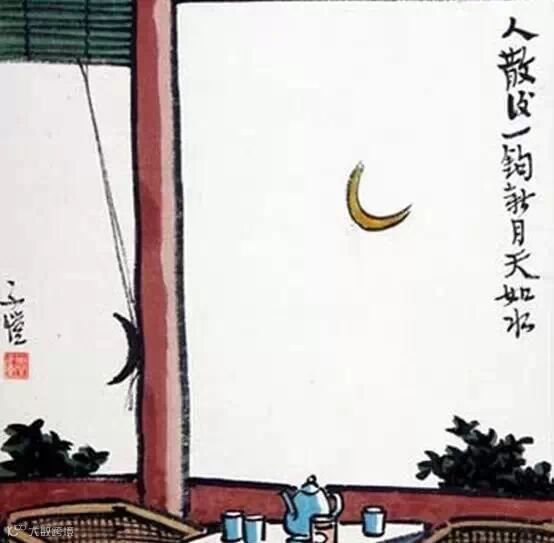 人散后一钩新月天如水
子愷
大数跨境